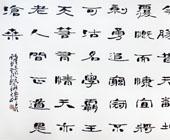 今勝昔天翻地
覆慨而慷宜將
剩勇追窮寇不
可沽名學霸王
天若有情天亦
老人間正道是
滄桑